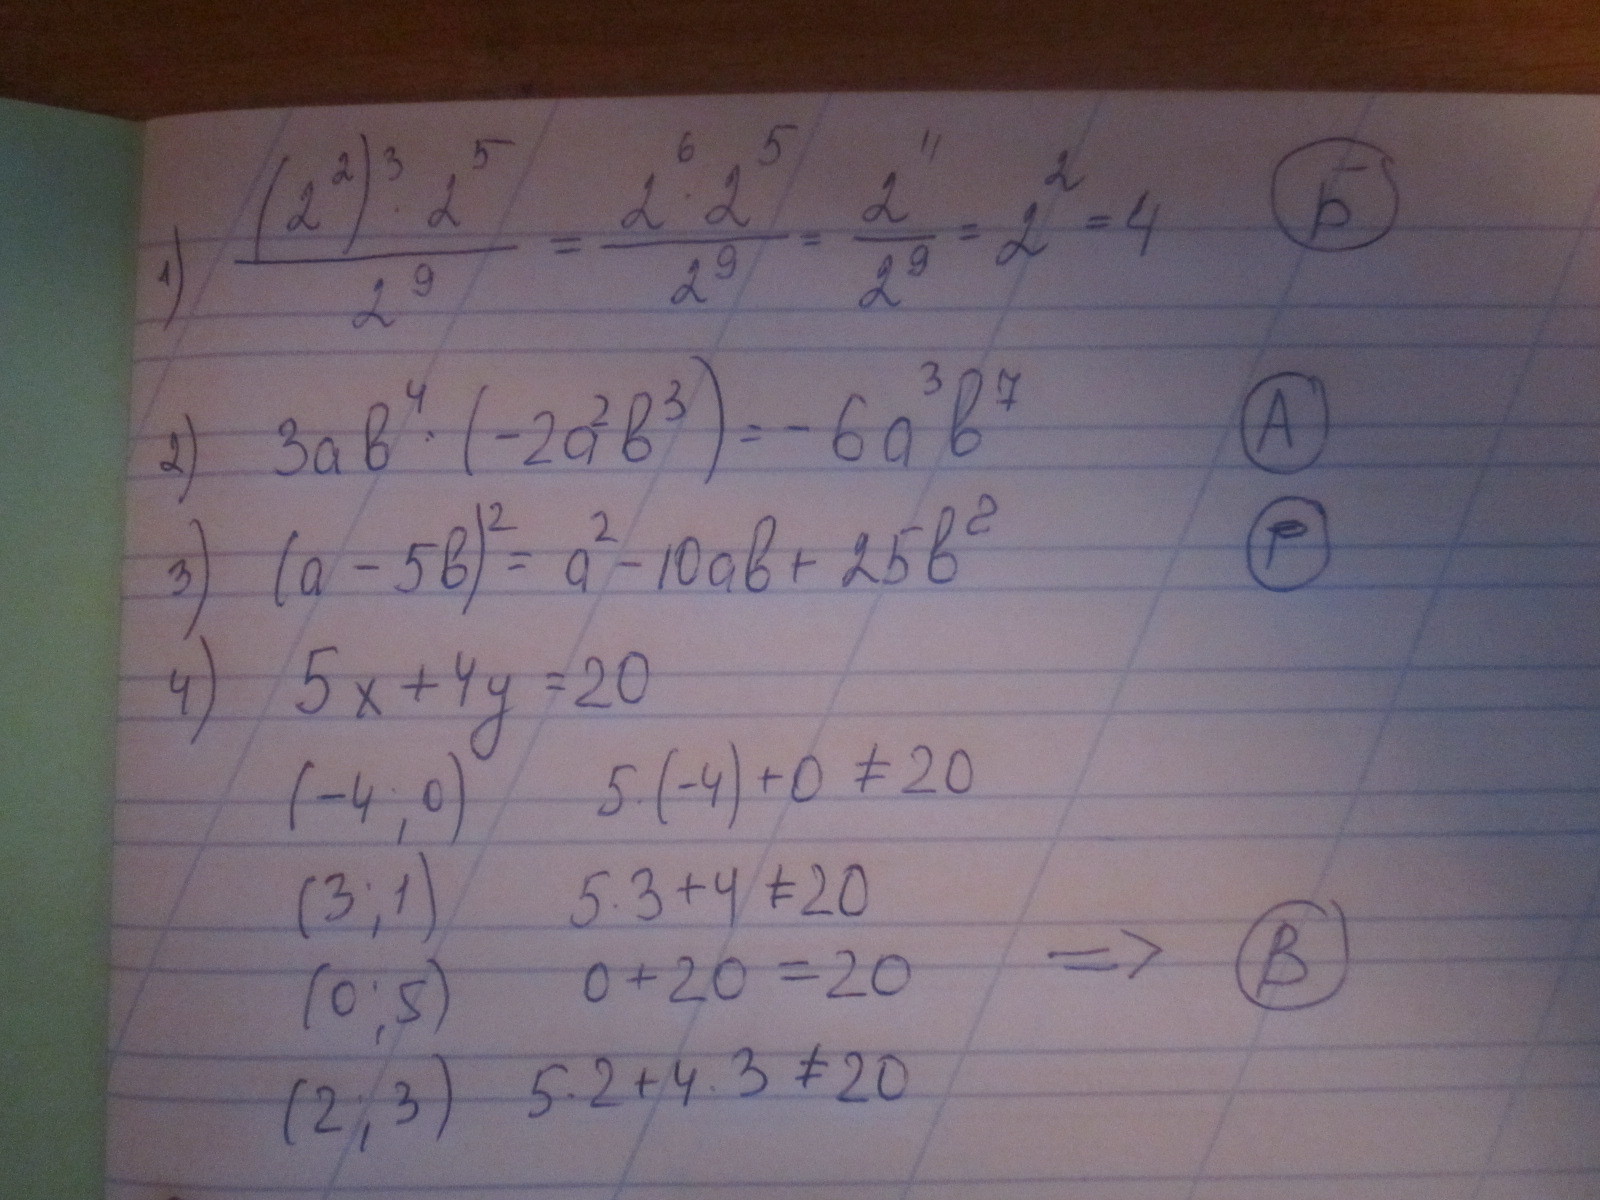 1) (2²)³ · 2⁵ / 2⁹ = 2⁶ · 2⁵ / 2⁹ = 2¹¹ / 2⁹ = 2² = 4 Б
2) 3ав⁴ · (-2а²в³) = -6а³в⁷ А
3) (а - 5в)² = а² - 10ав + 25в² Г
4) 5x + 4y = 20
(-4; 0) 5·(-4) + 0 ≠ 20
(3; 1) 5·3 + 4 ≠ 20
(0; 5) 0 + 20 = 20 => В
(2; 3) 5·2 + 4·3 ≠ 20